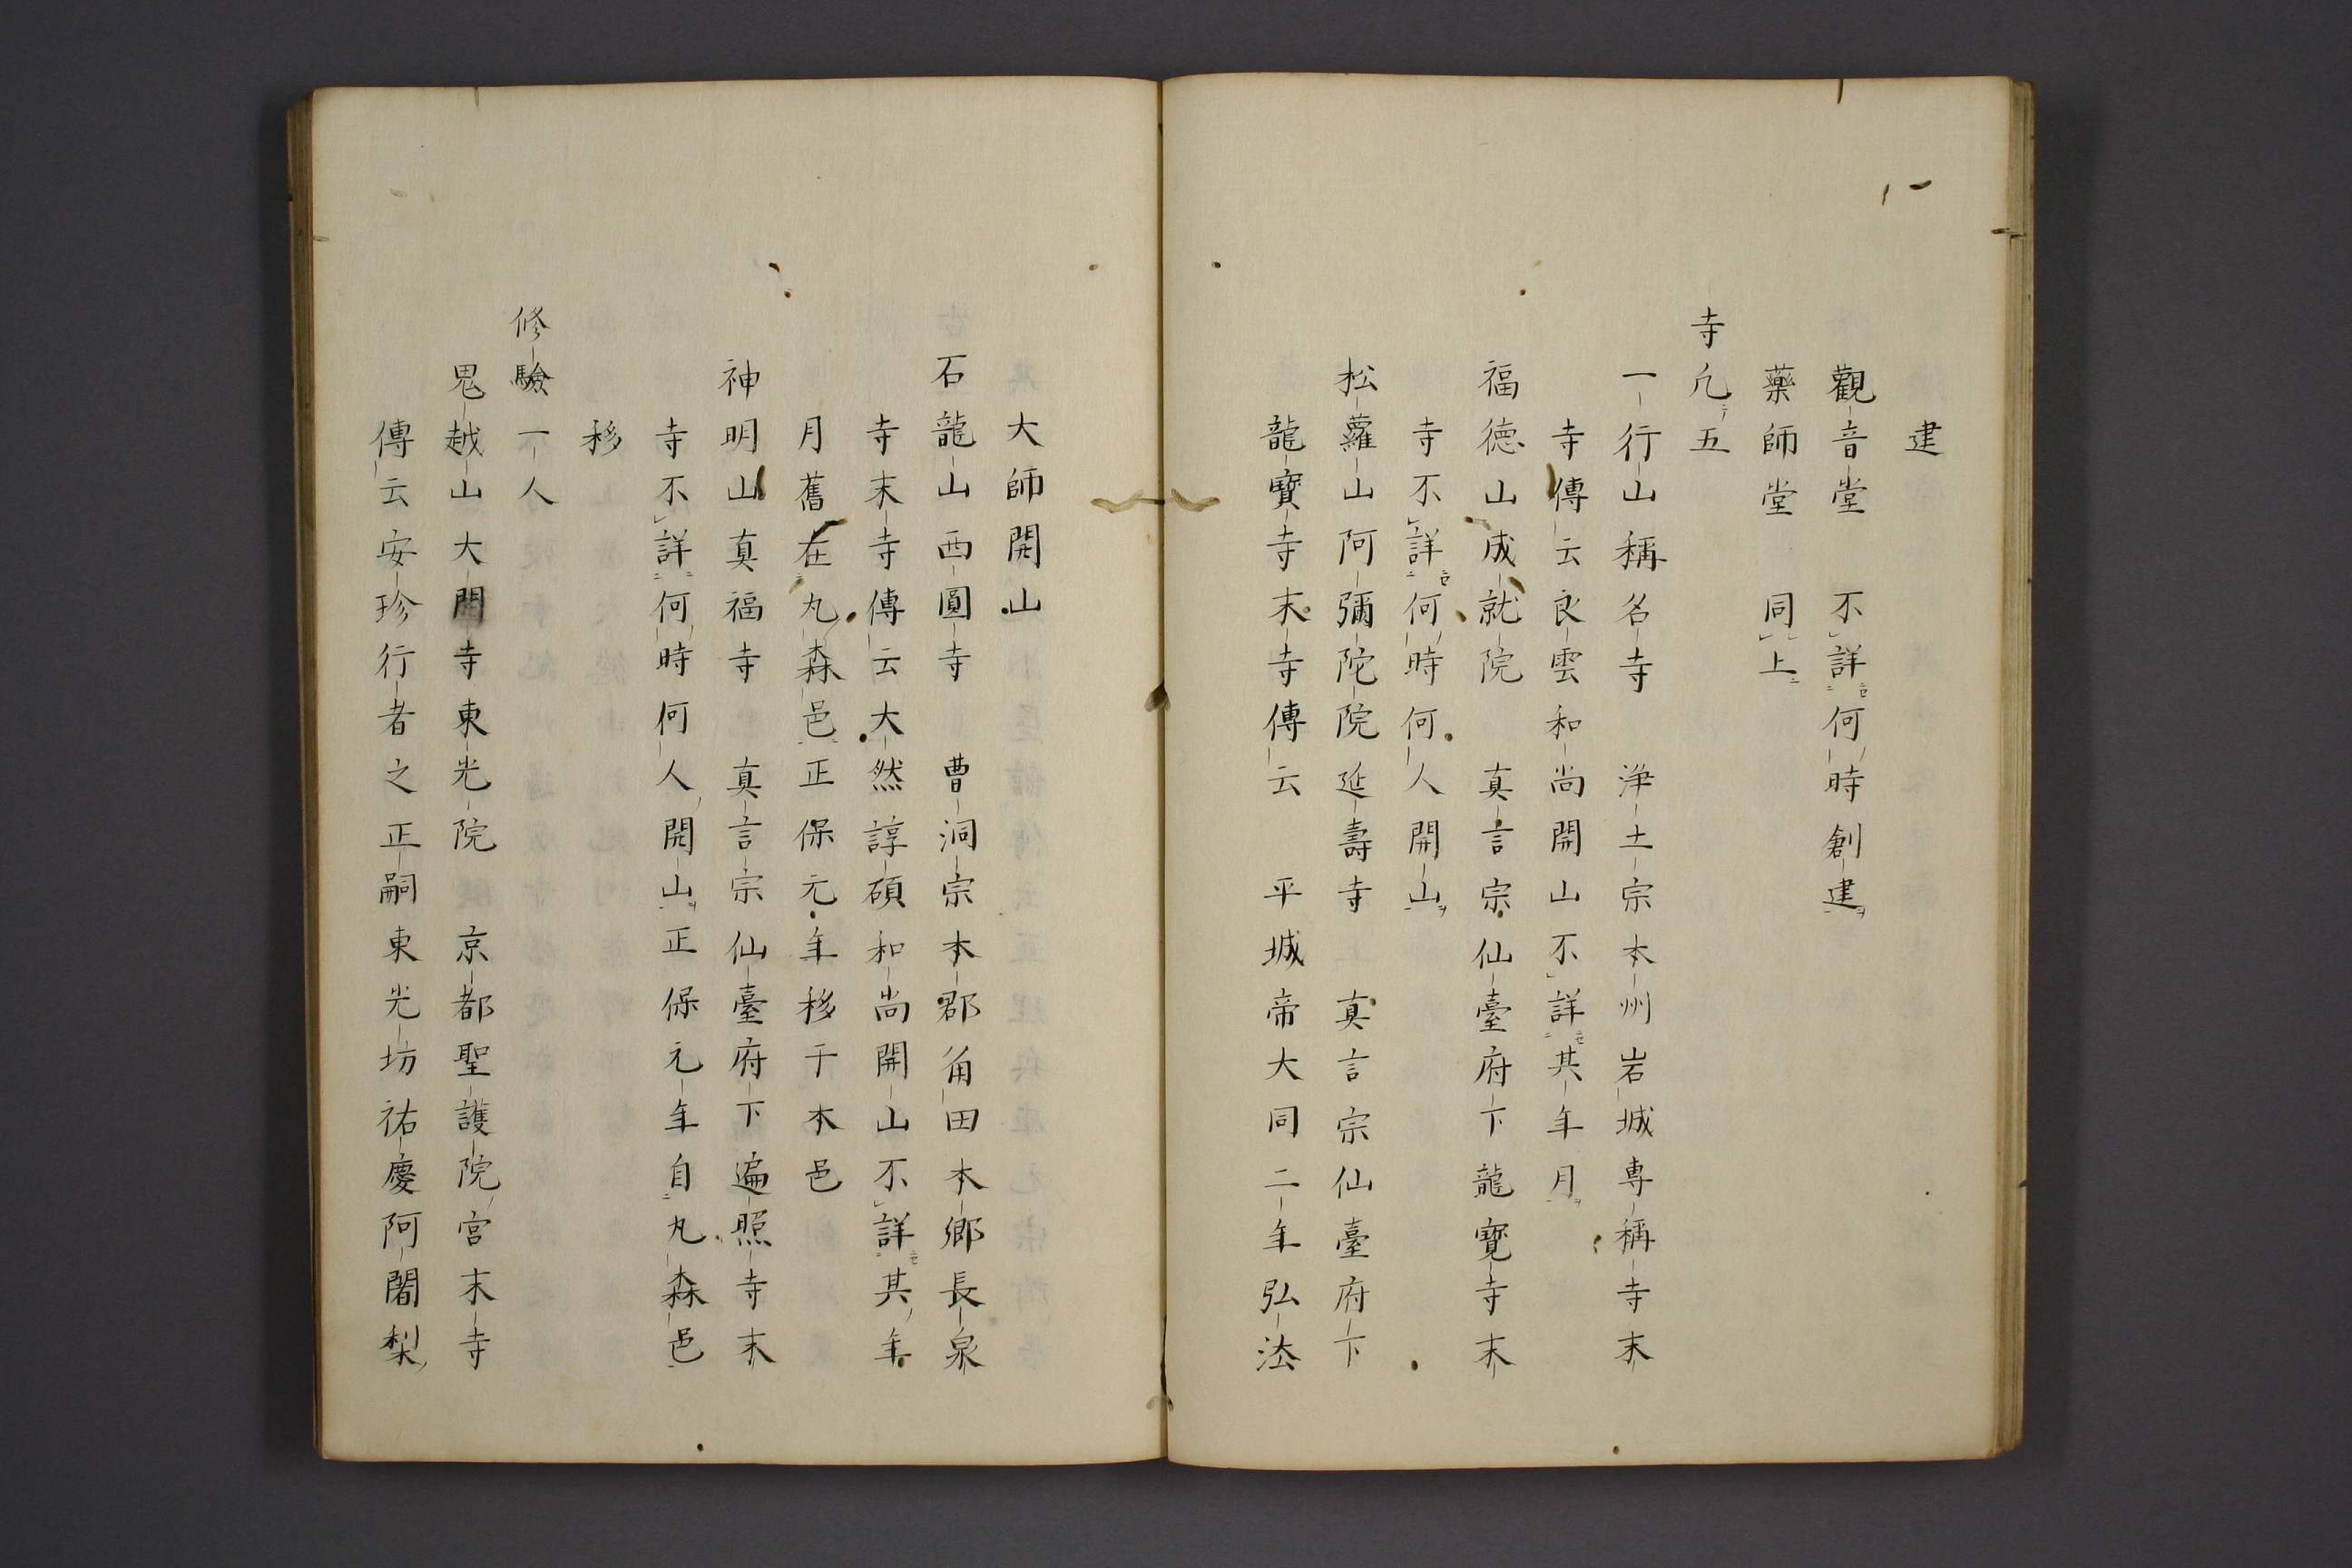 建
觀音堂　不詳何時創建
藥師堂　同上
寺凢五
一行山稱名寺　浄土宗本州岩城専稱寺末
寺傳云良雲和尚開山不詳其年月
福徳山成就院　真言宗仙臺府下龍寳寺末
寺不詳何時何人開山
松蘿山阿彌陀院延壽寺　真言宗仙臺府下
龍寳寺末寺傳云　平城帝大同二年弘法
大師開山
石龍山西圓寺　曹洞宗本郡角田本郷長泉
寺末寺傳云大然諄碩和尚開山不詳其年
月舊在丸森邑正保元年移于本邑
神明山真福寺　真言宗仙臺府下遍照寺末
寺不詳何時何人開山正保元年自丸森邑
移
修驗一人
光越山大門寺東光院　京都聖護院宮末寺
傳云安珍行者之正嗣東光坊祐慶阿闍梨